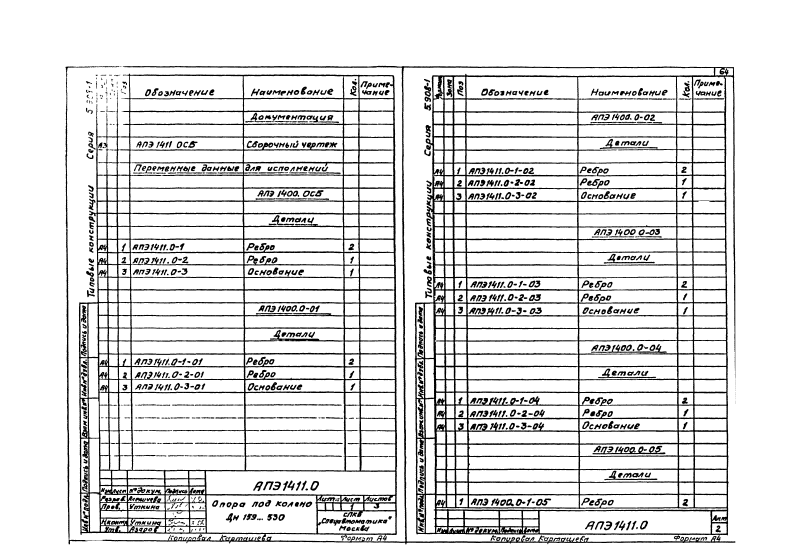 Типовые конструкции Серия 5.908-1
Поз Обозначение Наименование Кол. Приме-
чание
Документация
А3 АПЭ 1411 ОСБ Сборочный чертеж
Переменные данные для исполнений
АПЭ 1400. ОСБ
Детали
А4 1 АПЭ1411.0-1 Ребро 2
А4 2 АПЭ1411.0-2 Ребро 1
А4 3 АПЭ1411.0-3 Основание 1
АПЭ1400.0-01
Детали
А4 1 АПЭ1411.0-1-01 Ребро 2
А4 2 АПЭ1411.0-2-01 Ребро 1
А4 3 АПЭ1411.0-3-01 Основание 1
АПЭ1411.0
Изм Лист № докум. Подпись Дата
Разраб.
Пров. Уткина
Н.контр Уткина
Утв. Азаров
Опора под колено
Дн 159... 530
Лит. Лист Листов
1 3
СПКБ
„Спецавтоматика"
Москва
Копировал Карташева Формат А4
64
Типовые конструкции Серия 5.908-1
Формат Зона Поз Обозначение Наименование Кол. Приме-
чание
АПЭ 1400.0-02
Детали
А4 1 АПЭ1411.0-1-02 Ребро 2
А4 2 АПЭ1411.0-2-02 Ребро 1
А4 3 АПЭ1411.0-3-02 Основание 1
АПЭ 1400 0-03
Детали
А4 1 АПЭ1411.0-1-03 Ребро 2
А4 2 АПЭ1411.0-2-03 Ребро 1
А4 3 АПЭ1411.0-3-03 Основание 1
АПЭ1400.0-04
Детали
А4 1 АПЭ1411.0-1-04 Ребро 2
А4 2 АПЭ1411.0-2-04 Ребро 1
А4 3 АПЭ1411.0-3-04 Основание 1
АПЭ1400.0-05
Детали
А4 1 АПЭ 1400.0-1-05 Ребро 2
Изм Лист № Докум. Подпись Дата
АПЭ1411.0
Лист
2
Копировал Карташева Формат А4
Инв.№ подл. Подпись и дата Взам.инв.№ Инв.№ дубл. Подпись и дата